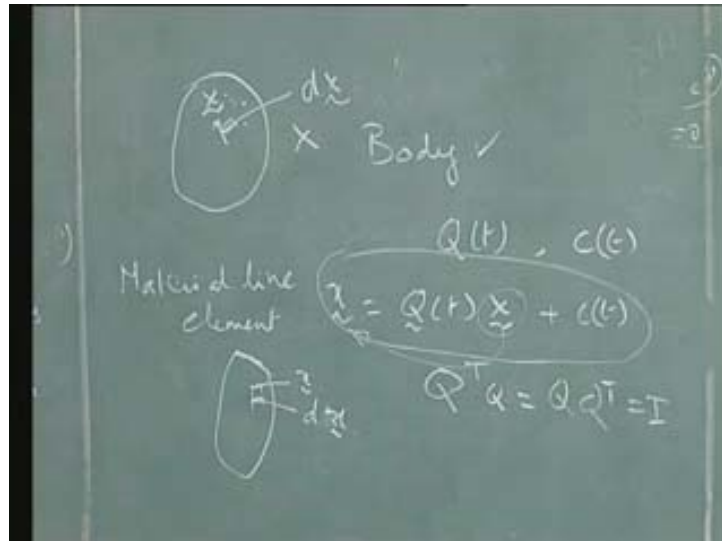 X dX
X Body ✓
Q(t) , c(t)
Material line
element
x = Q(t) X + c(t)
x
dx
QᵀQ = QQᵀ = I